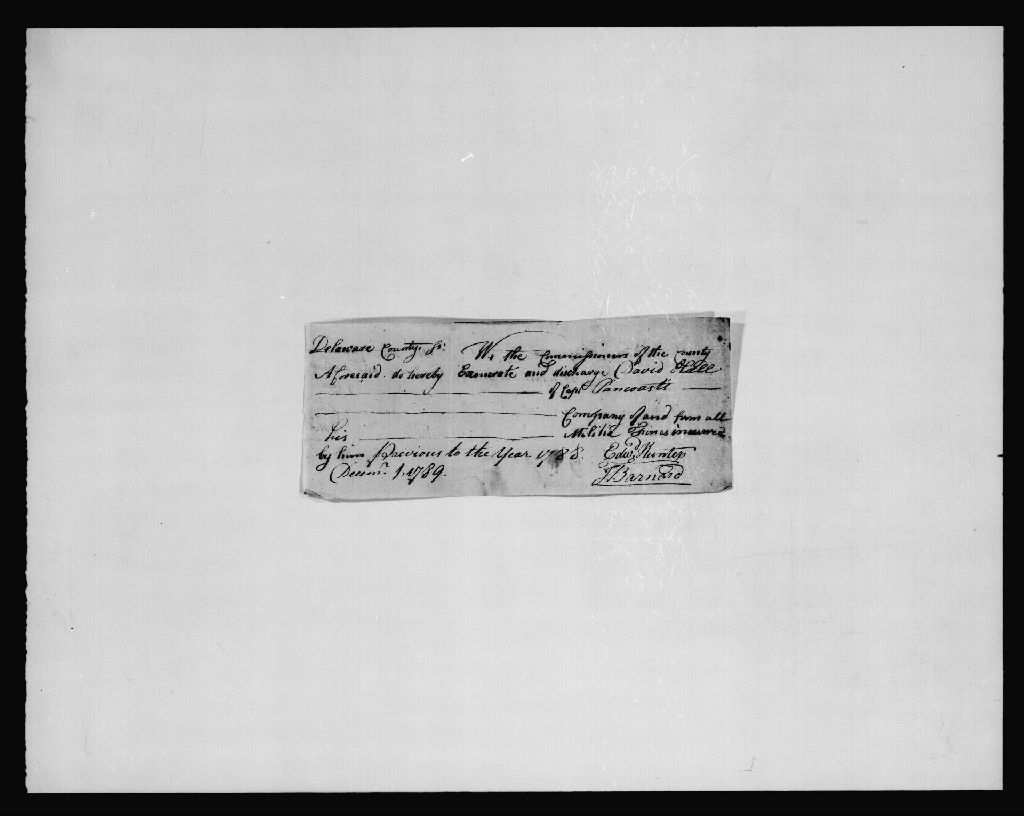 Delaware County Ss: We the Commissioners of the County
Aforesaid do hereby Exonerate and discharge David
of Capt Pancoasts
Company of and from all
his Militia Fines incurred
by him Previous to the Year 1788. Edwd Hunter
Decemr. 1. 1789. J Barnard